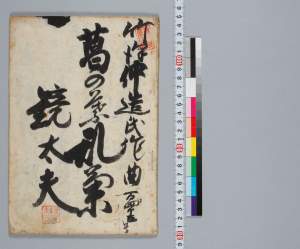 竹澤仲造氏作曲
葛の葉乱菊
鏡太夫